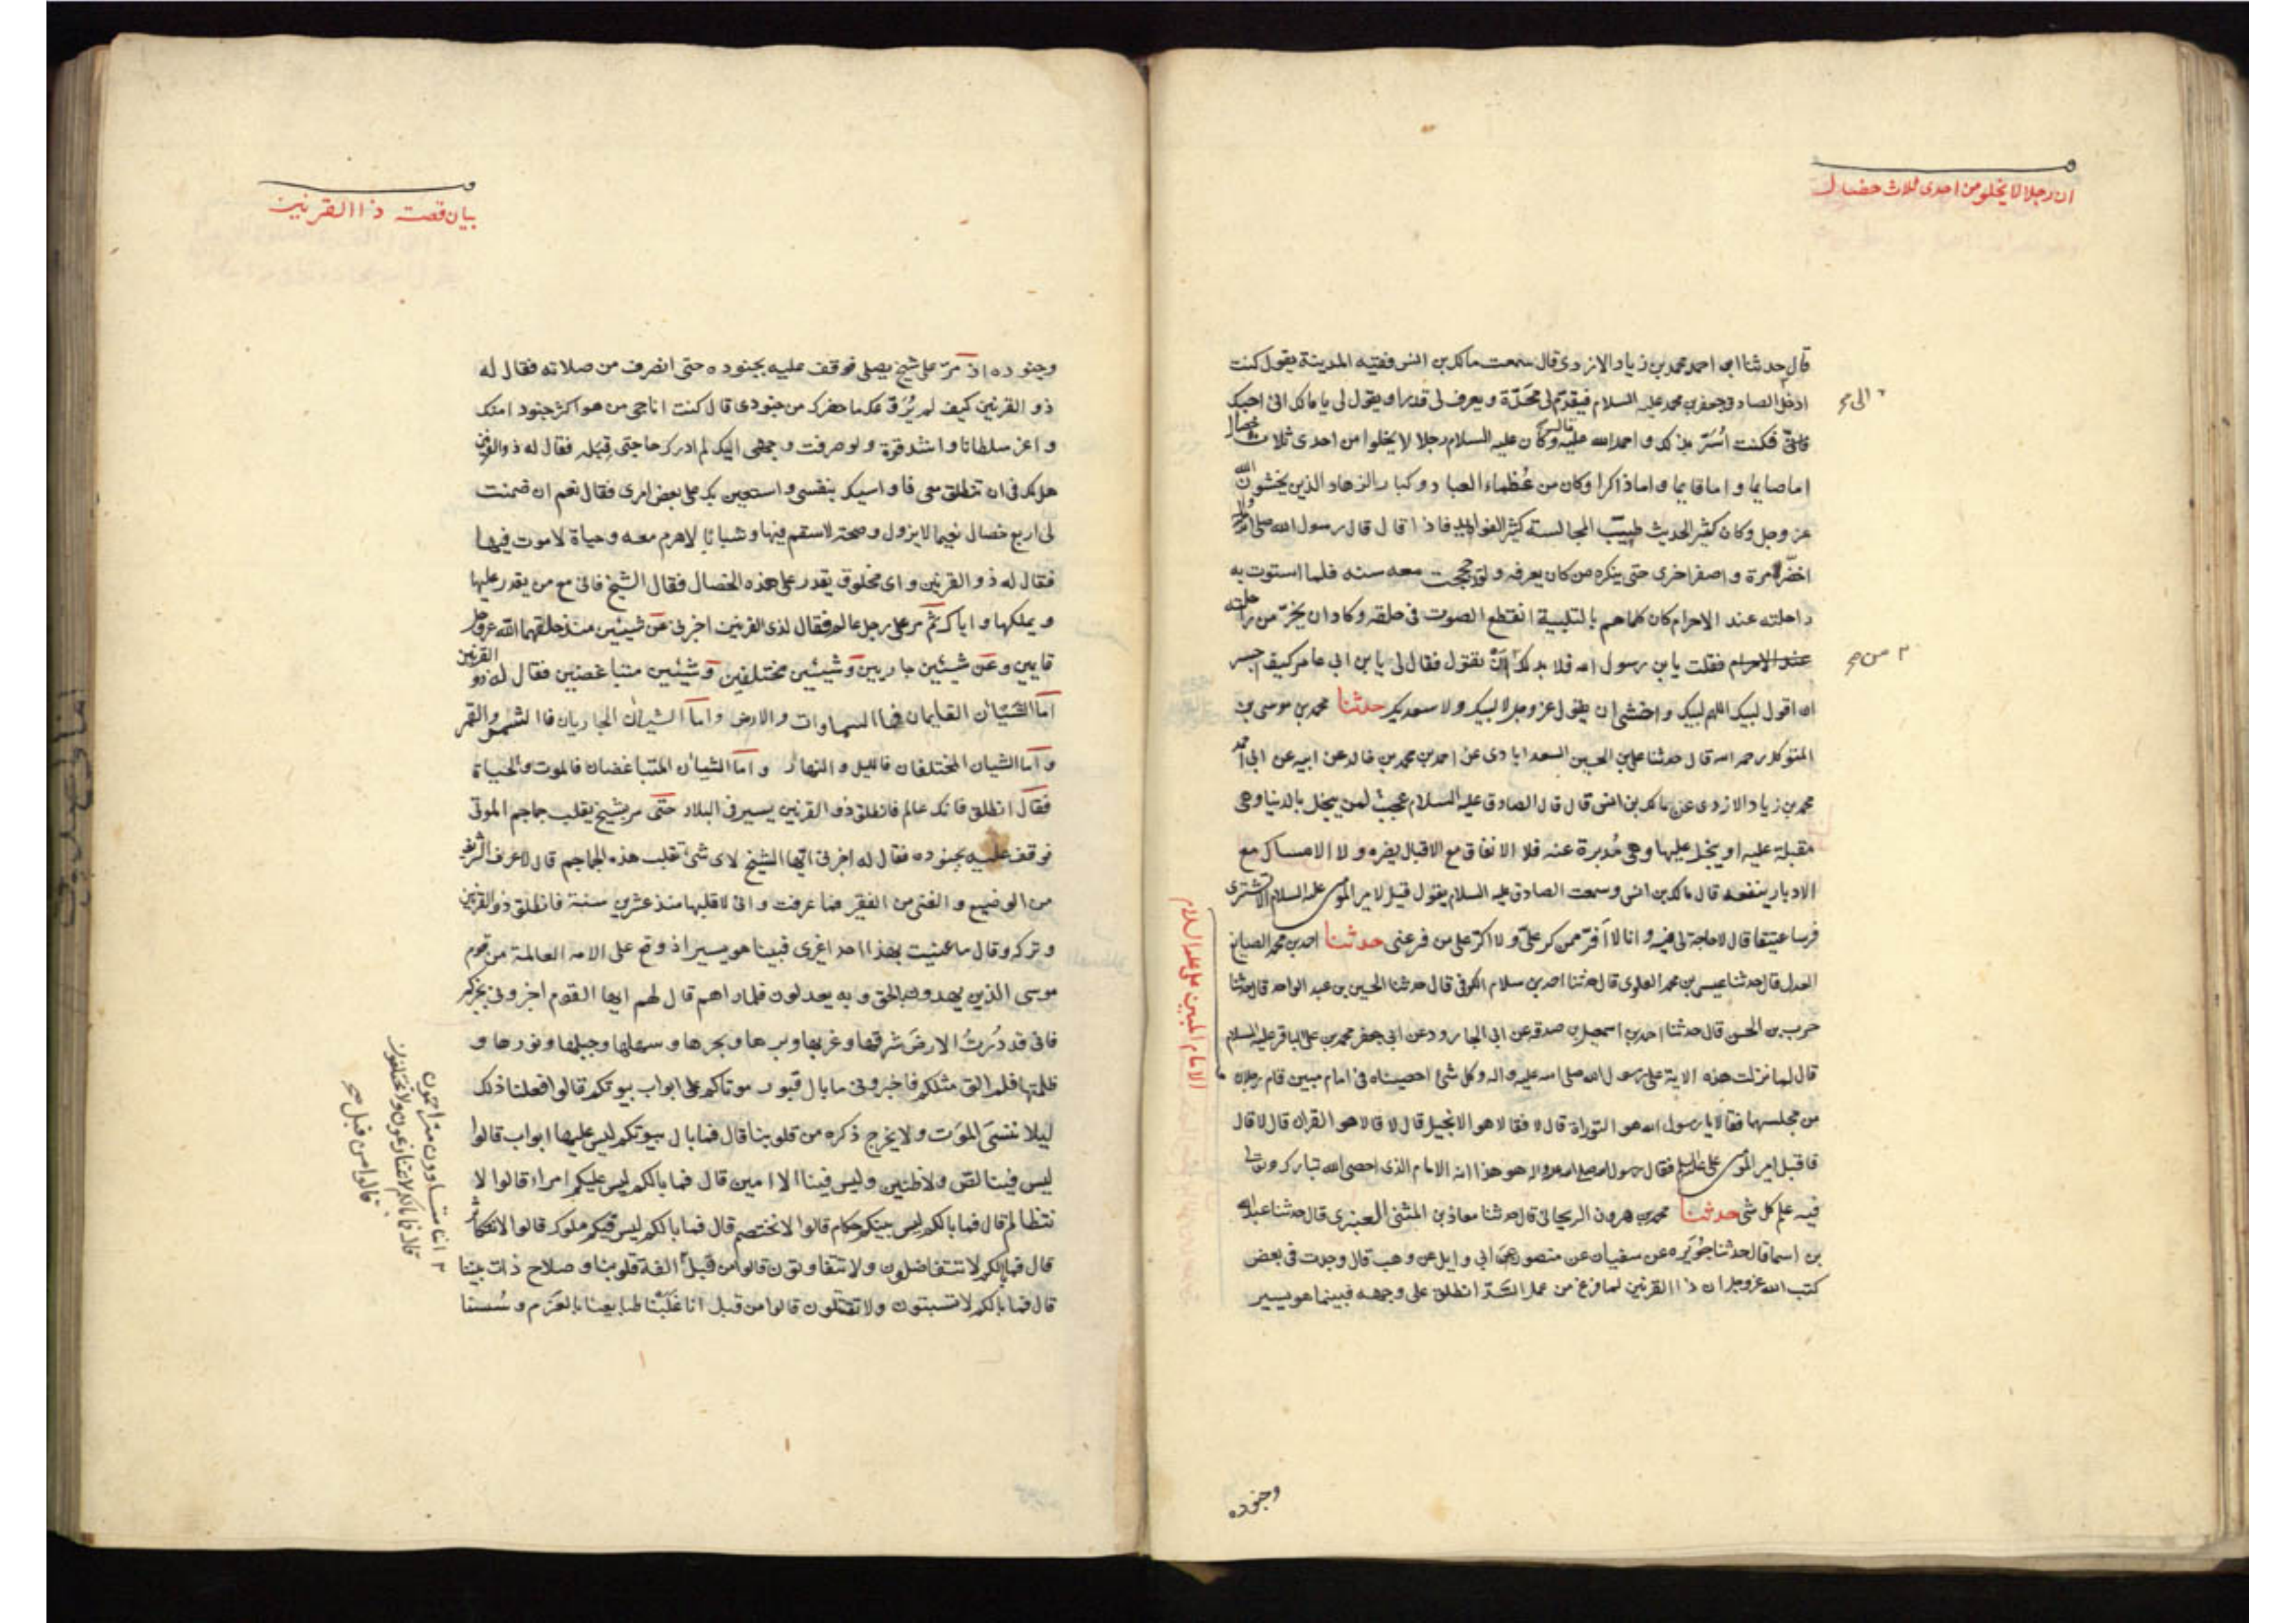 ان رجلا لا يخلو من احدى ثلاث خصال
قال حدثنا ابى احمد محمد بن زياد الازدى قال سمعت مالك بن انس فقيه المدينة يقول كنت
ادخل الصادق جعفر بن محمد عليه السلام فيقدم لى مخدّة ويعرف لى قدرا ويقول لى يا مالك انى احبك
الى صح
فكنت اُسَرّ بذلك و احمد الله عليه قال وكان عليه السلام رجلا لا يخلوا من احدى ثلاث خصال
اما صايما و اما قايما و اما ذاكرا وكان من عُظماء العباد وكبار الزهاد الذين يخشون الله
عز وجل وكان كثير الحديث طيب المجالسة كثير الفوايد فاذا قال قال رسول الله صلى الله عليه واله
اخضرّ مرة و اصفر اخرى حتى ينكره من كان يعرفه و لقد حججت معه سنه فلما استوت به
راحلته عند الاحرام كان كلما هم بالتلبية انقطع الصوت فى حلقه وكاد ان يخرّ من راحلته
عند الاحرام فقلت يا بن رسول الله فلا بد لك ان تقول فقال لى يا بن ابى عامر كيف اجسر
٣ من صح
ان اقول لبيك اللهم لبيك و اخشى ان يقول عز وجل لا لبيك ولا سعديك حدثنا محمد بن موسى بن
المتوكل رحمه الله قال حدثنا على بن الحسين السعد ابادى عن احمد بن محمد بن خالد عن ابيه عن ابى احمد
محمد بن زياد الازدى عن مالك بن انس قال قال الصادق عليه السلام عجبت لمن يبخل بالدنيا وهى
مقبلة عليه او يبخل عليها وهى مُدبرة عنه فلا الانفاق مع الاقبال يضره و لا الامساك مع
الادبار ينفعه قال مالك بن انس وسمعت الصادق عليه السلام يقول قيل لامير المومنين عليه السلام الا تشترى
فرسا عتيقا قال لا حاجة لى فيه و انا لا اَفرّ ممن كر علىّ و لا اكرّ على من فر عنى حدثنا احمد بن محمد الصايغ
العدل قال حدثنا عيسى بن محمد العلوى قال حدثنا احمد بن سلام الكوفى قال حدثنا الحسين بن عبد الواحد قال حدثنا
حرب بن الحسن قال حدثنا احمد بن اسمعيل بن صدقه عن ابى الجارود عن ابى جعفر محمد بن على الباقر عليه السلام
قال لما نزلت هذه الاية على رسول الله صلى الله عليه واله وكل شئ احصيناه فى امام مبين قام رجلان
من مجلسهما فقالا يا رسول الله هو التوراة قال لا فقالا هو الانجيل قال لا قالا هو القران قال لا قال
فاقبل امير المومنين على عليه السلام فقال رسول الله صلى الله عليه واله هو هذا انه الامام الذى احصى الله تبارك وتعالى
فيه علم كل شى حدثنا محمد بن هرون الريحانى قال حدثنا معاذ بن المثنى العنبرى قال حدثنا عبد الله
بن اسما قال حدثنا جُوَيره عن سفيان عن منصور عن ابى وايل عن وهب قال وجدت فى بعض
كتب الله عز وجل ان ذا القرنين لما فرغ من عمل السّدّ انطلق على وجهه فبينما هو يسير
الامام المبين على عليه السلام
وجنوده
بيان قصت ذا القرنين
وجنوده اذ مرّ على شيخ يصلى فوقف عليه بجنوده حتى انصرف من صلاته فقال له
ذو القرنين كيف لم يُرَوّعك ما حضرك من جنودى قال كنت اناجى من هو اكثر جنودا منك
و اعز سلطانا و اشد قوة و لو صرفت وجهى اليك لم ادرك حاجتى قِبَله فقال له ذو القرنين
هل لك فى ان تنطلق معى فاواسيك بنفسى و استعين بك على بعض امرى فقال نعم ان ضمنت
لى اربع خصال نعيما لا يزول و صحة لا سقم فيها و شبابا لا هرم معه و حياة لا موت فيها
فقال له ذو القرنين و اى مخلوق يقدر على هذه الخصال فقال الشيخ فانى مع من يقدر عليها
و يملكها و اياك ثم مر على رجل عالم فقال لذى القرنين اخبرنى عن شيئين منذ خلقهما الله عز وجل
قايمين و عن شيئين جاريين و شيئين مختلفين و شيئين متباغضين فقال له ذو القرنين
اما الشيئان القايمان فهما السماوات و الارض و اما الشيئان الجاريان فالشمس و القمر
و اما الشيئان المختلفان فالليل و النهار و اما الشيئان المتباغضان فالموت و الحياة
فقال انطلق فانك عالم فانطلق ذو القرنين يسير فى البلاد حتى مر بشيخ يقلب جماجم الموتى
فوقف عليه بجنوده فقال له اخبرنى ايها الشيخ لاى شئ تقلب هذه الجماجم قال لاعرف الشريف
من الوضيع و الغنى من الفقير فما عرفت و انى لاقلبها منذ عشرين سنة فانطلق ذو القرنين
و تركه و قال ما عنيت بهذا احدا غيرى فبينا هو يسير اذ وقع على الامة العالمة من قوم
موسى الذين يهدون بالحق و به يعدلون فلما راهم قال لهم ايها القوم اخبرونى بخبركم
فانى قد دُرتُ الارض شرقها و غربها و برها و بحرها و سهلها و جبلها و نورها و
ظلمتها فلم الق مثلكم فاخبرونى ما بال قبور موتاكم على ابواب بيوتكم قالوا فعلنا ذلك
ليلا ننسى الموت و لا يخرج ذكره من قلوبنا قال فما بال بيوتكم ليس عليها ابواب قالوا
ليس فينا لص و لا ظنين و ليس فينا الا امين قال فما بالكم ليس عليكم امراء قالوا لا
نتظالم قال فما بالكم ليس بينكم حكام قالوا لا نختصم قال فما بالكم ليس فيكم ملوك قالوا لا نتكاثر
قال فما بالكم لا تتفاضلون و لا تتفاوتون قالوا من قبل الفة قلوبنا و صلاح ذات بيننا
قال فما بالكم لا تستبون و لا تقتلون قالوا من قبل انا غَلَبْنا طبايعنا بالعَزم و سُسنا
٣ انا متساوون متراحمون
قال فما بالكم لا تتنازعون و لا تختلفون
قالوا من قبل صح